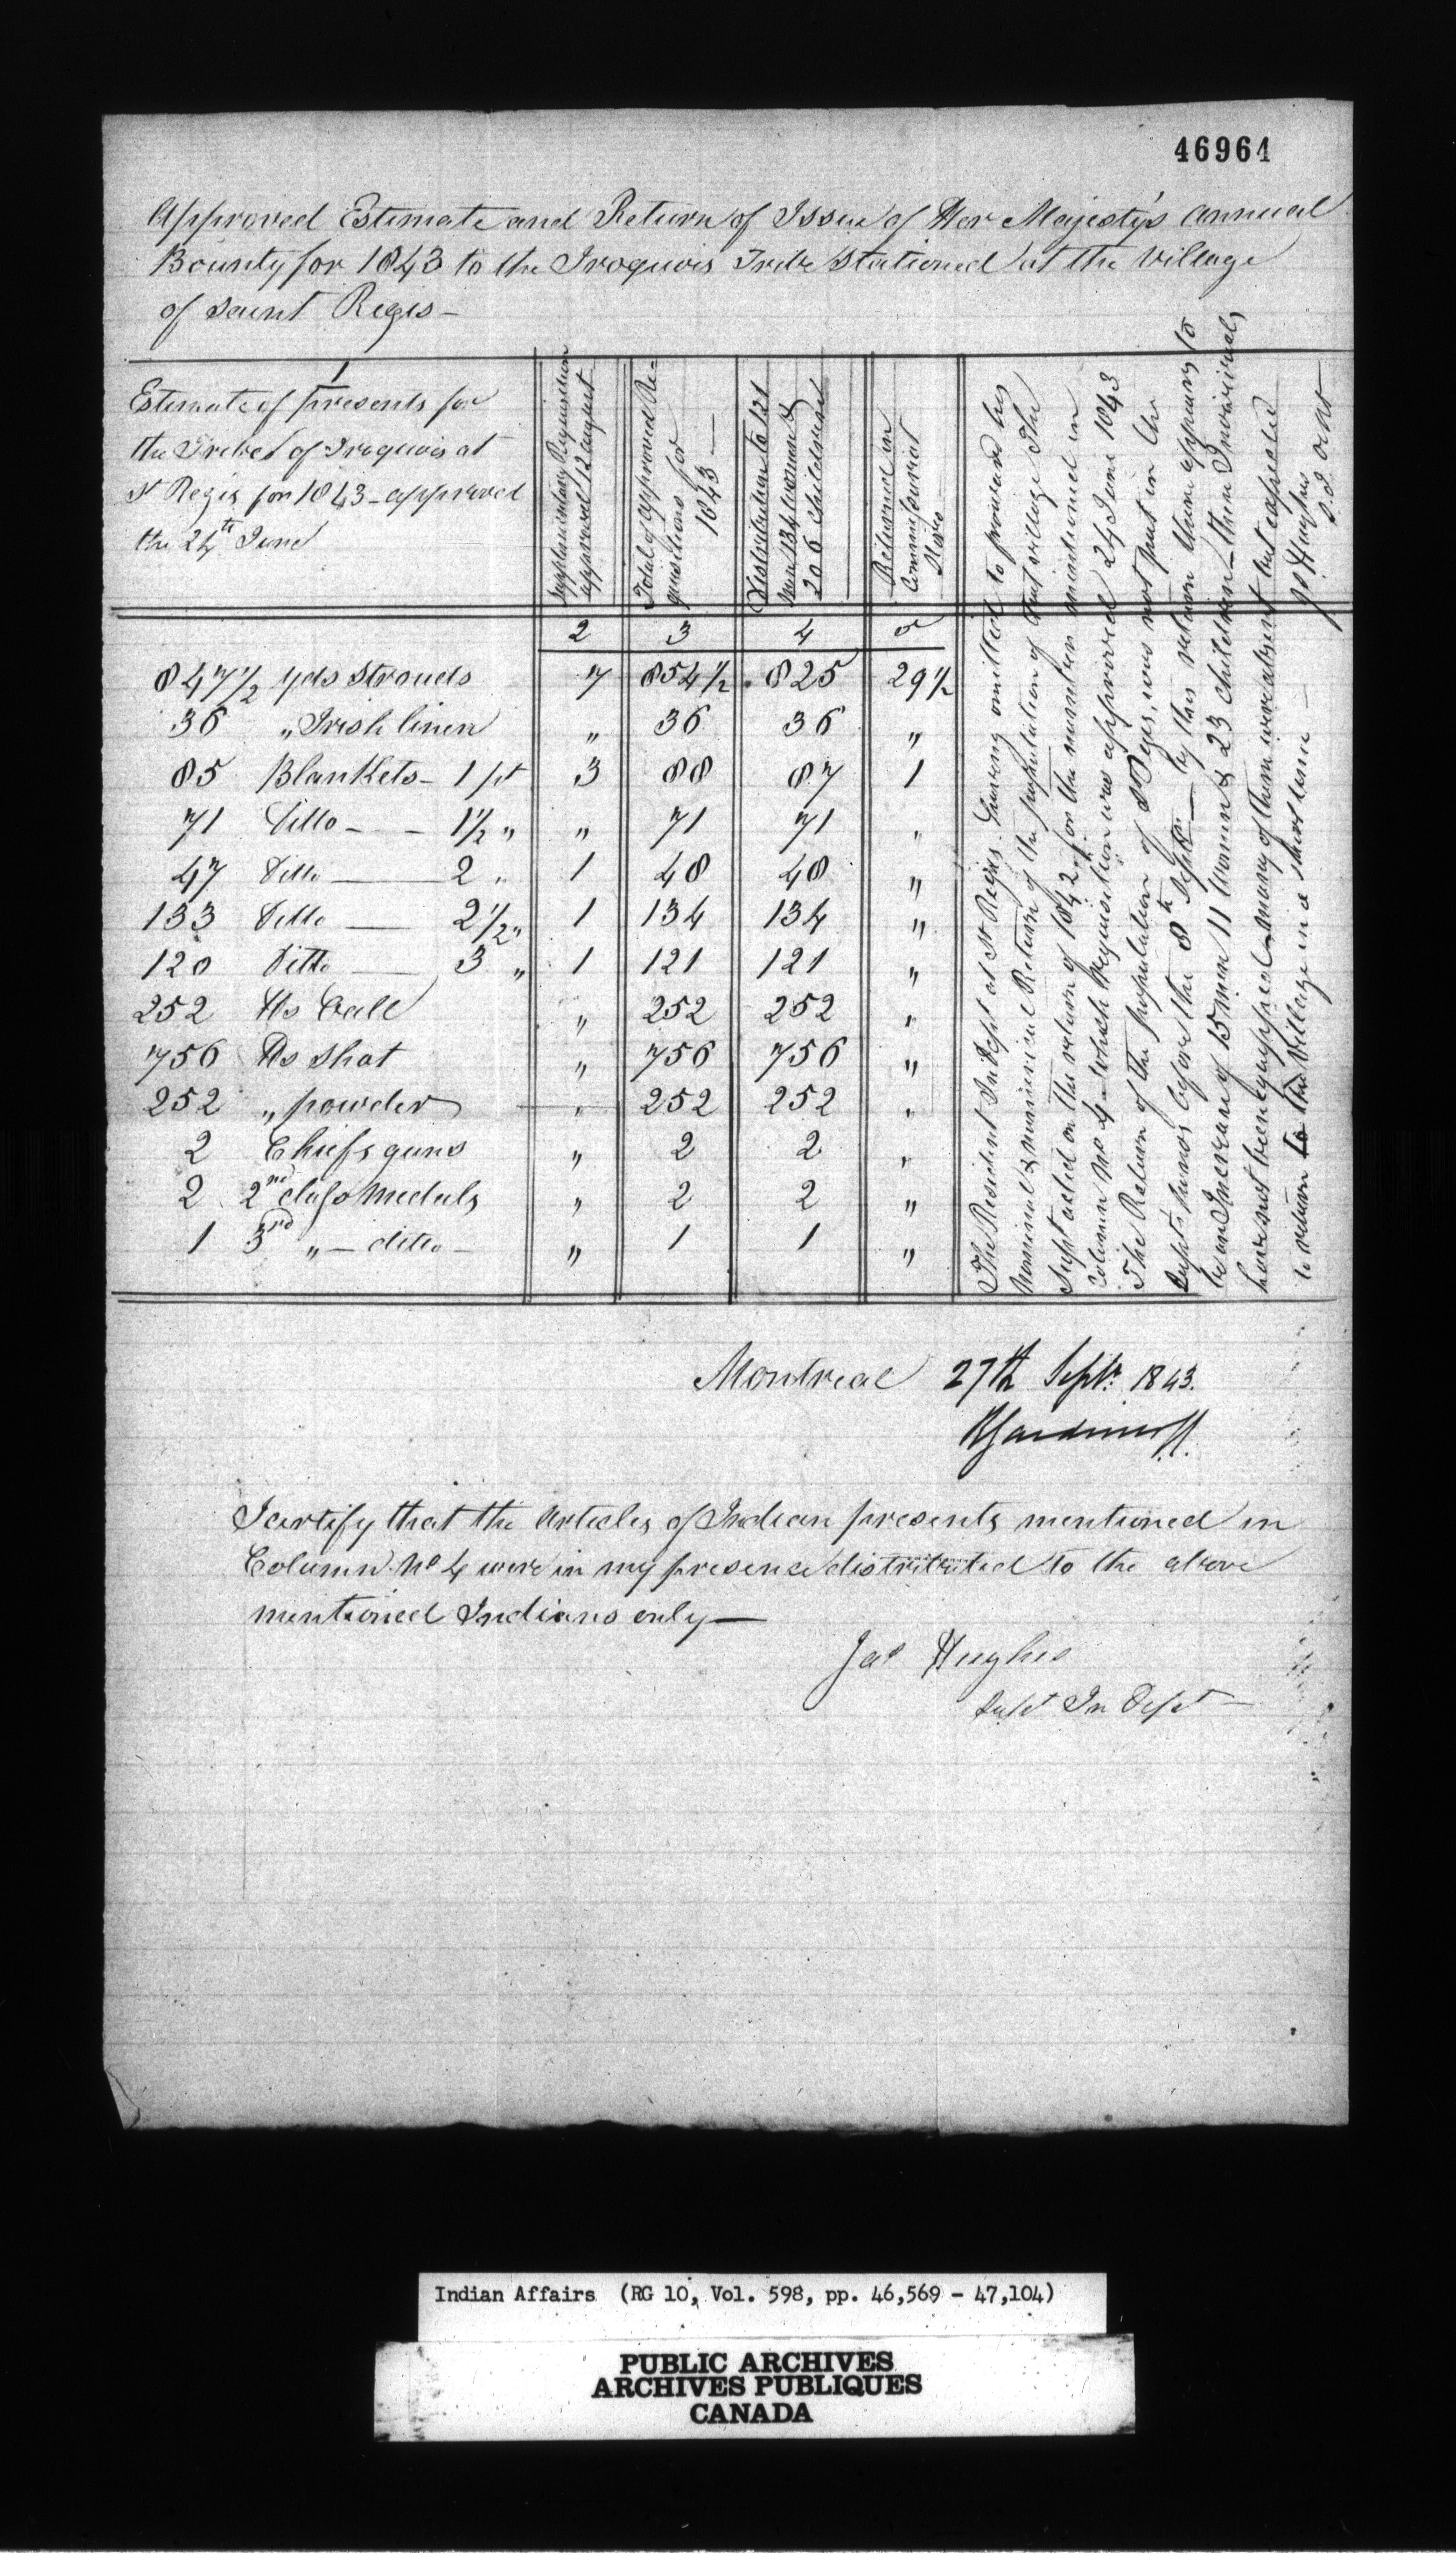 46964
Approved Estimate and Return of Issue of Her Majesty's annual
Bounty for 1843 to the Iroquois Tribe stationed at the Village
of Saint Regis -
1
Estimate of presents for
the Tribes of Iroquois at
St Regis for 1843 - approved
the 24th June
Supplementary Requisition
approved 12 august
Total of approved Re-
quisitions for
1843 —
Distribution to 121
men 134 women &
206 children
Returned in
Commissariat
Store
2 3 4 5
847 1/2 yds Strouds 7 854 1/2 825 29 1/2
36 „ Irish linen „ 36 36 „
85 Blankets - 1 pt 3 88 87 1
71 Ditto - - 1 1/2 „ „ 71 71 „
47 Ditto — 2 „ 1 48 48 „
133 Ditto — 2 1/2 „ 1 134 134 „
120 Ditto — 3 „ 1 121 121 „
252 lbs Ball „ 252 252 „
756 lbs Shot „ 756 756 „
252 „ powder „ 252 252 „
2 Chiefs guns „ 2 2 „
2 2nd class Medals „ 2 2 „
1 3rd „ - ditto - „ 1 1 „
The Resident In Dept at St Regis. having omitted to forward his
Nominal & numerical Return of the population of that village The
Supt acted on the return of 1842 for the number mentioned in
Column No 4 - which Requisition was approved 24 June 1843
The Return of the population of St Regis, was not put in the
Supt's hands before the 8th Septr — by this return there appears to
be an Increase of 15 men 11 women & 23 children - these Individuals
have not been equipped - many of them were absent but expected
to return to the village in a short time —
Js Hughes
S.I. Dept
Montreal 27th Septr. 1843.
I certify that the articles of Indian presents mentioned in
Column No 4 were in my presence distributed to the above
mentioned Indians only —
Jas Hughes
Supt In Dept —
Indian Affairs (RG 10, Vol. 598, pp. 46,569 - 47,104)
PUBLIC ARCHIVES
ARCHIVES PUBLIQUES
CANADA